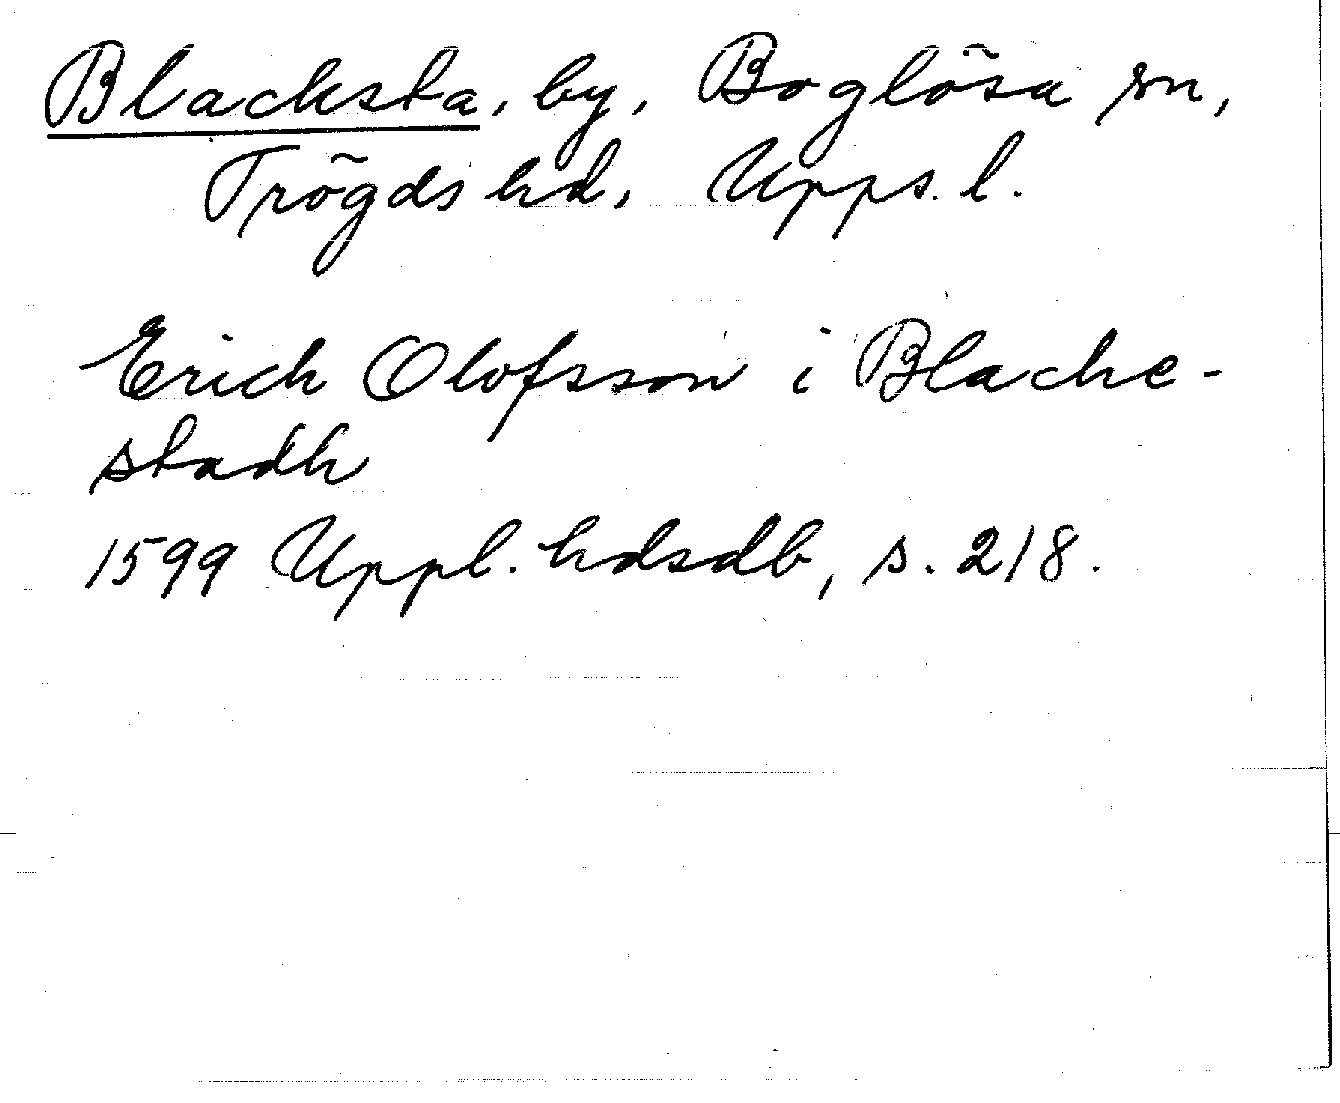 Blacksta, by, Boglösa sn,
Trögds hd, Upps. l.
Erich Olofsson i Blacke-
stadh
1599 Uppl. hdsdb, s. 218.